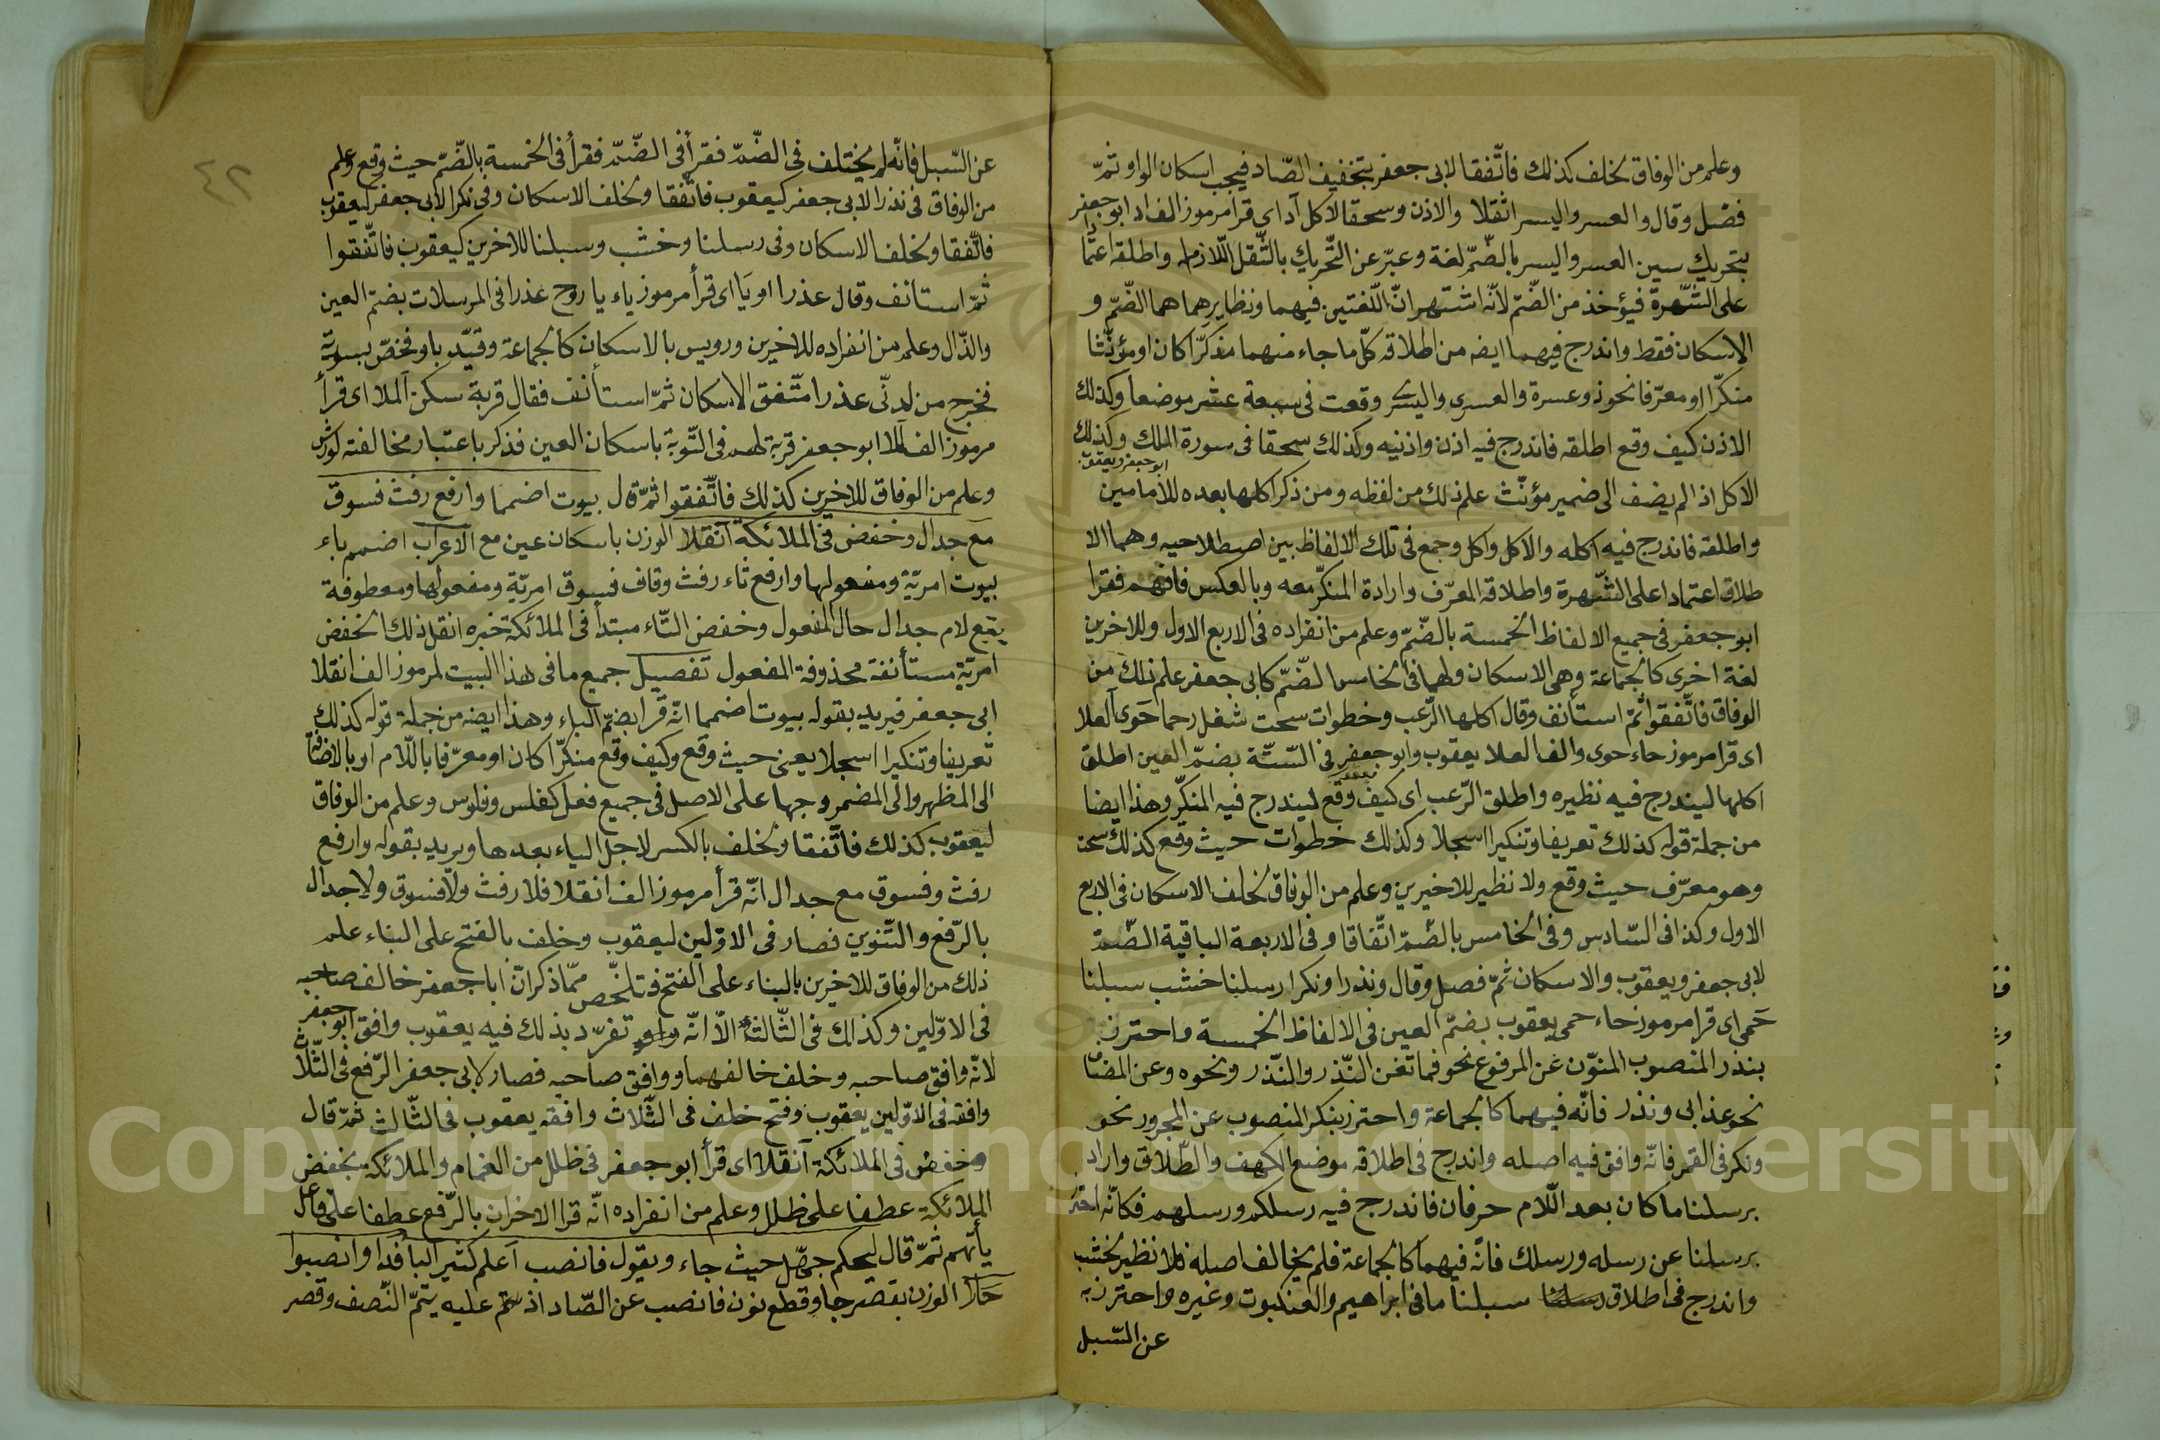 وعلم من الوفاق لخلف كذلك فاتّفقا لابى جعفر بتخفيف الصّاد فيجب اسكان الواو ثمّ
فصّل وقال والعسر واليسر اثقلا والاذن وسحقا الاكل آد اى قرا مرموز الف اد ابو جعفر
بتحريك سين العسر واليسر بالضّمّ لغة وعبّر عن التّحريك بالثّقل اللّازم له واطلقه اعتمادا
على الشّهرة فيؤخذ من الضّمّ لانّه اشتهر انّ اللّغتين فيهما ونظايرهما هما الضّمّ و
الاسكان فقط واندرج فيهما ايضه من اطلاقه كلّ ما جاء منهما مذكّرا كان او مؤنّثا
منكّرا او معرّفا نحو ذو عسرة والعسرى واليسرى وقعت فى سبعة عشر موضعا وكذلك
الاذن كيف وقع اطلقه فاندرج فيه اذن واذنيه وكذلك سحقا فى سورة الملك وكذلك
ابو جعفر ويعقوب
الاكل اذا لم يضف الى ضمير مؤنّث علم ذلك من لفظه ومن ذكر اكلها بعده للأمامين
واطلقه فاندرج فيه اكله والاكل واكل وجمع فى تلك الالفاظ بين اصطلاحيه وهما الا
طلاق اعتمادا على الشّهرة واطلاقه المعرّف وارادة المنكّر معه وبالعكس فافهم فقرا
ابو جعفر فى جميع الالفاظ الخمسة بالضّمّ وعلم من انفراده فى الاربع الاول وللاخرين
لغة اخرى كالجماعة وهى الاسكان ولهما فى الخامس الضّمّ كابى جعفر علم ذلك من
الوفاق فاتّفقوا ثمّ استأنف وقال اكلها الرّعب وخطوات سحت شغل رحما حوى آلعلا
اى قرا مرموز حاء حوى والف العلا يعقوب وابو جعفر فى السّتّة بضمّ العين اطلق
اكلها ليندرج فيه نظيره واطلق الرّعب اى كيف وقع ليندرج فيه المنكّر وهذا ايضا
من جملة قوله كذلك تعريفا وتنكيرا اسجلا وكذلك خطوات حيث وقع كذلك سحت
وهو معرّف حيث وقع ولا نظير للاخيرين وعلم من الوفاق لخلف الاسكان فى الاربع
الاول وكذا فى السّادس وفى الخامس بالضّمّ اتّفاقا وفى الاربعة الباقية الضّمّ
لابى جعفر ويعقوب والاسكان ثمّ فصل وقال ونذرا ونكرا رسلنا خشب سبلنا
حمى اى قرا مرموز حاء حمى يعقوب بضمّ العين فى الالفاظ الخمسة واحترز
بنذر المنصوب المنوّن عن المرفوع نحو فما تغن النّذر والنّذر ونحوه وعن المضا
نحو عذابى ونذر فانّه فيهما كالجماعة واحترز بنكر المنصوب عن المجرور نحو
ونكر فى القمر فانّه وافق فيه اصله واندرج فى اطلاقه موضع الكهف والطّلاق واراد
برسلنا ما كان بعد اللّام حرفان فاندرج فيه رسلكم ورسلهم فكانّه احترز
برسلنا عن رسله ورسلك فانّه فيهما كالجماعة فلم يخالف اصله فلا نظير لخشب
واندرج فى اطلاق سبلنا ما فى ابراهيم والعنكبوت وغيره واحترز به
عن السّبل
٤٢
عن السّبل فانّه لم يختلف فى الضّمّ فقرأ فى الضّمّ فقرأ فى الخمسة بالضّمّ حيث وقع وعلم
من الوفاق فى نذرا لابى جعفر كيعقوب فاتّفقا ولخلف الاسكان وفى نكرا لابى جعفر كيعقوب
فاتّفقا ولخلف الاسكان وفى رسلنا وخشب وسبلنا للاخرين كيعقوب فاتّفقوا
ثمّ استانف وقال عذرا او يا اى قرأ مرموز ياء يا روح عذرا فى المرسلات بضمّ العين
والذّال وعلم من انفراده للاخيرين ورويس بالاسكان كالجماعة وقيّد باو فخصّ بسورته
فخرج من لدنّى عذرا متّفق الاسكان ثمّ استأنف فقال قربة سكن آلملا اى قرأ
مرموز الف آلملا ابو جعفر قربة لهم فى التّوبة باسكان العين فذكر باعتبار مخالفته لورش
وعلم من الوفاق للاخرين كذلك فاتّفقوا ثمّ قال بيوت اضمما وارفع رفث فسوق
مع جدال وخفض فى الملائكة آنقلا الوزن باسكان عين مع الاعراب اضمم باء
بيوت امريّة ومفعولها وارفع ثاء رفث وقاف فسوق امريّة ومفعولها ومعطوفة
يقع لام جدال حال المفعول وخفض التّاء مبتدأ فى الملائكة خبره انقل ذلك الخفض
امريّة مستأنفة محذوفة المفعول تفصيل جميع ما فى هذا البيت لمرموز الف انقلا
ابى جعفر فيريد بقوله بيوت اضمما انّه قرا بضمّ الباء وهذا ايضه من جملة قوله كذلك
تعريفا وتنكيرا اسجلا يعنى حيث وقع وكيف وقع منكّرا كان او معرّفا باللّام او بالاضافة
الى المظهر والى المضمر وجهها على الاصل فى جميع فعل كفلس وفلوس وعلم من الوفاق
ليعقوب كذلك فاتّفقا ولخلف بالكسر لاجل الياء بعدها ويريد بقوله وارفع
رفث وفسوق مع جدال انّه قرأ مرموز الف انقلا فلا رفث ولا فسوق ولا جدال
بالرّفع والتّنوين فصار فى الاوّلين ليعقوب وخلف بالفتح على البناء علم
ذلك من الوفاق للاخرين بالبناء على الفتح فتلخّص ممّا ذكر انّ ابا جعفر خالف صاحبه
فى الاوّلين وكذلك فى الثّالثة الّا انّه تفرّد بذلك فيه يعقوب وافق ابو جعفر
لانّه وافق صاحبه وخلف خالفهما ووافق صاحبه فصار لابى جعفر الرّفع فى الثّلاث
وافقه فى الاوّلين يعقوب وفتح خلف فى الثّلاث وافقه يعقوب فى الثّالث ثمّ قال
وخفض فى الملائكة آنقلا اى قرأ ابو جعفر فى ظلل من الغمام والملائكة بخفض
الملائكة عطفا على ظلل وعلم من انفراده انّه قرا الاخران بالرّفع عطفا على فاعل
يأتهم ثمّ قال ليحكم جهّل حيث جاء ويقول فانصب آعلم كثير البا فدا وانصبوا
حلا الوزن بقصر جا وقطع نون فانصب عن الصّاد اذ تمّ عليه يتمّ النّصف وقصر
Copyright © King Saud University